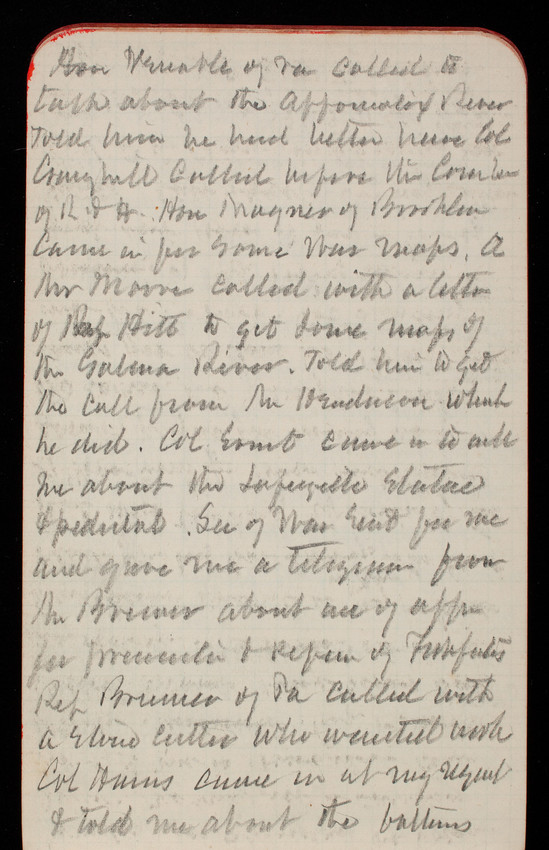 Hon Venable of Va called to
talk about the Appomatox River
Told him he had better have Col
Craighill called before the Com
of R & H. Hon Magner of Brooklin
came in for some War maps. A
Mr Moore called with a letter
of Rep Hitt to get some maps of
the Galena River. Told him to get
the call from Mr Henderson which
he did. Col Ernst came in to ask
me about the Lafayette Statue
& pedestal. Sec of War sent for me
and gave me a telegram from
Mr Brewer about use of appn
for &  of
Rep Brumm of Pa called with
a stone cutter who wanted work
Col Hains came in at my request
& told me about the